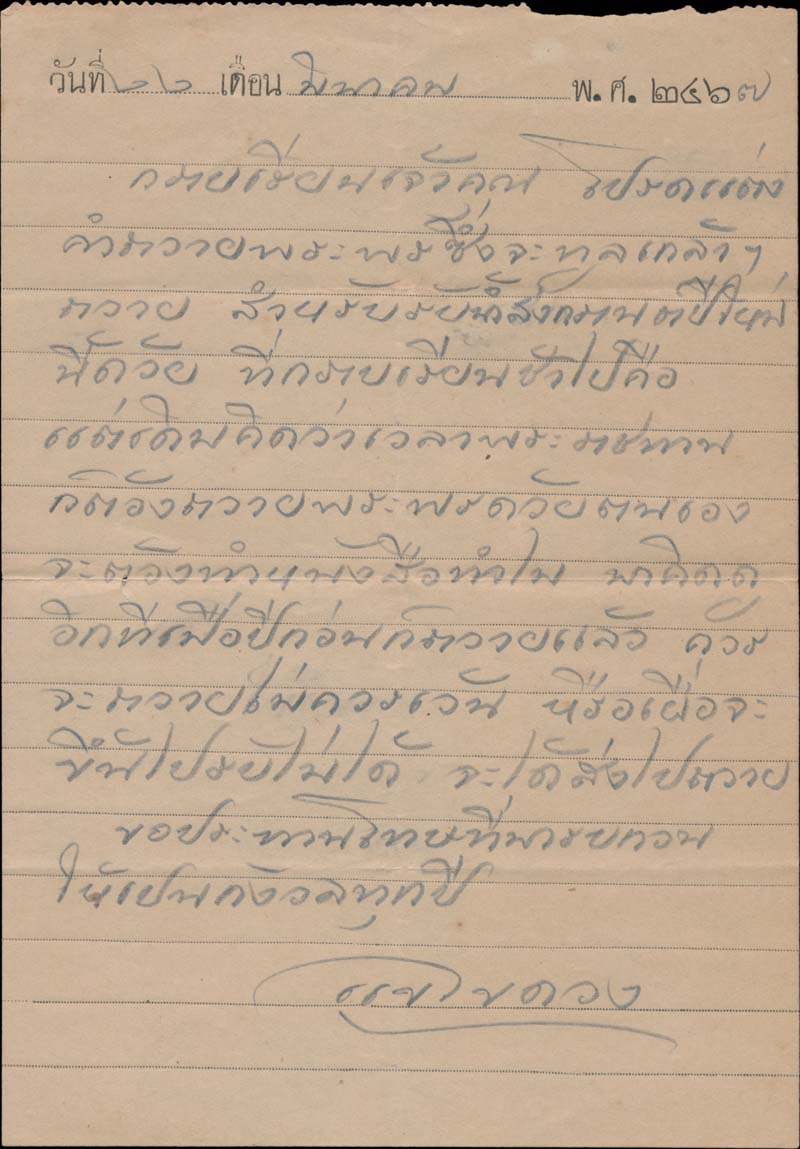 วันที่ ๒๒ เดือน มีนาคม พ.ศ. ๒๔๖๗
กราบเรียนเจ้าคุณ โปรดแต่ง
คำถวายพระพรซึ่งจะทูลเกล้าฯ
ถวาย สำหรับรับน้ำสงกรานต์ปีใหม่
นี้ด้วย ที่กราบเรียนช้าไปคือ
แต่เดิมคิดว่าเวลาพระราชทาน
ก็ต้องถวายพระพรด้วยตนเอง
จะต้องทำหนังสือทำไม มาคิดดู
อีกทีเมื่อปีก่อนก็ถวายแล้ว ควร
จะถวายไม่ควรเว้น หรือเผื่อจะ
ขึ้นไปรับไม่ได้ จะได้ส่งไปถวาย
ขอประทานโทษที่มารบกวน
ให้เป็นกังวลทุกปี